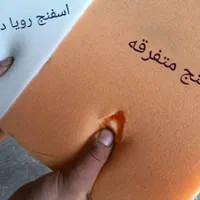 اسفنج رویا د
نج متفرقه